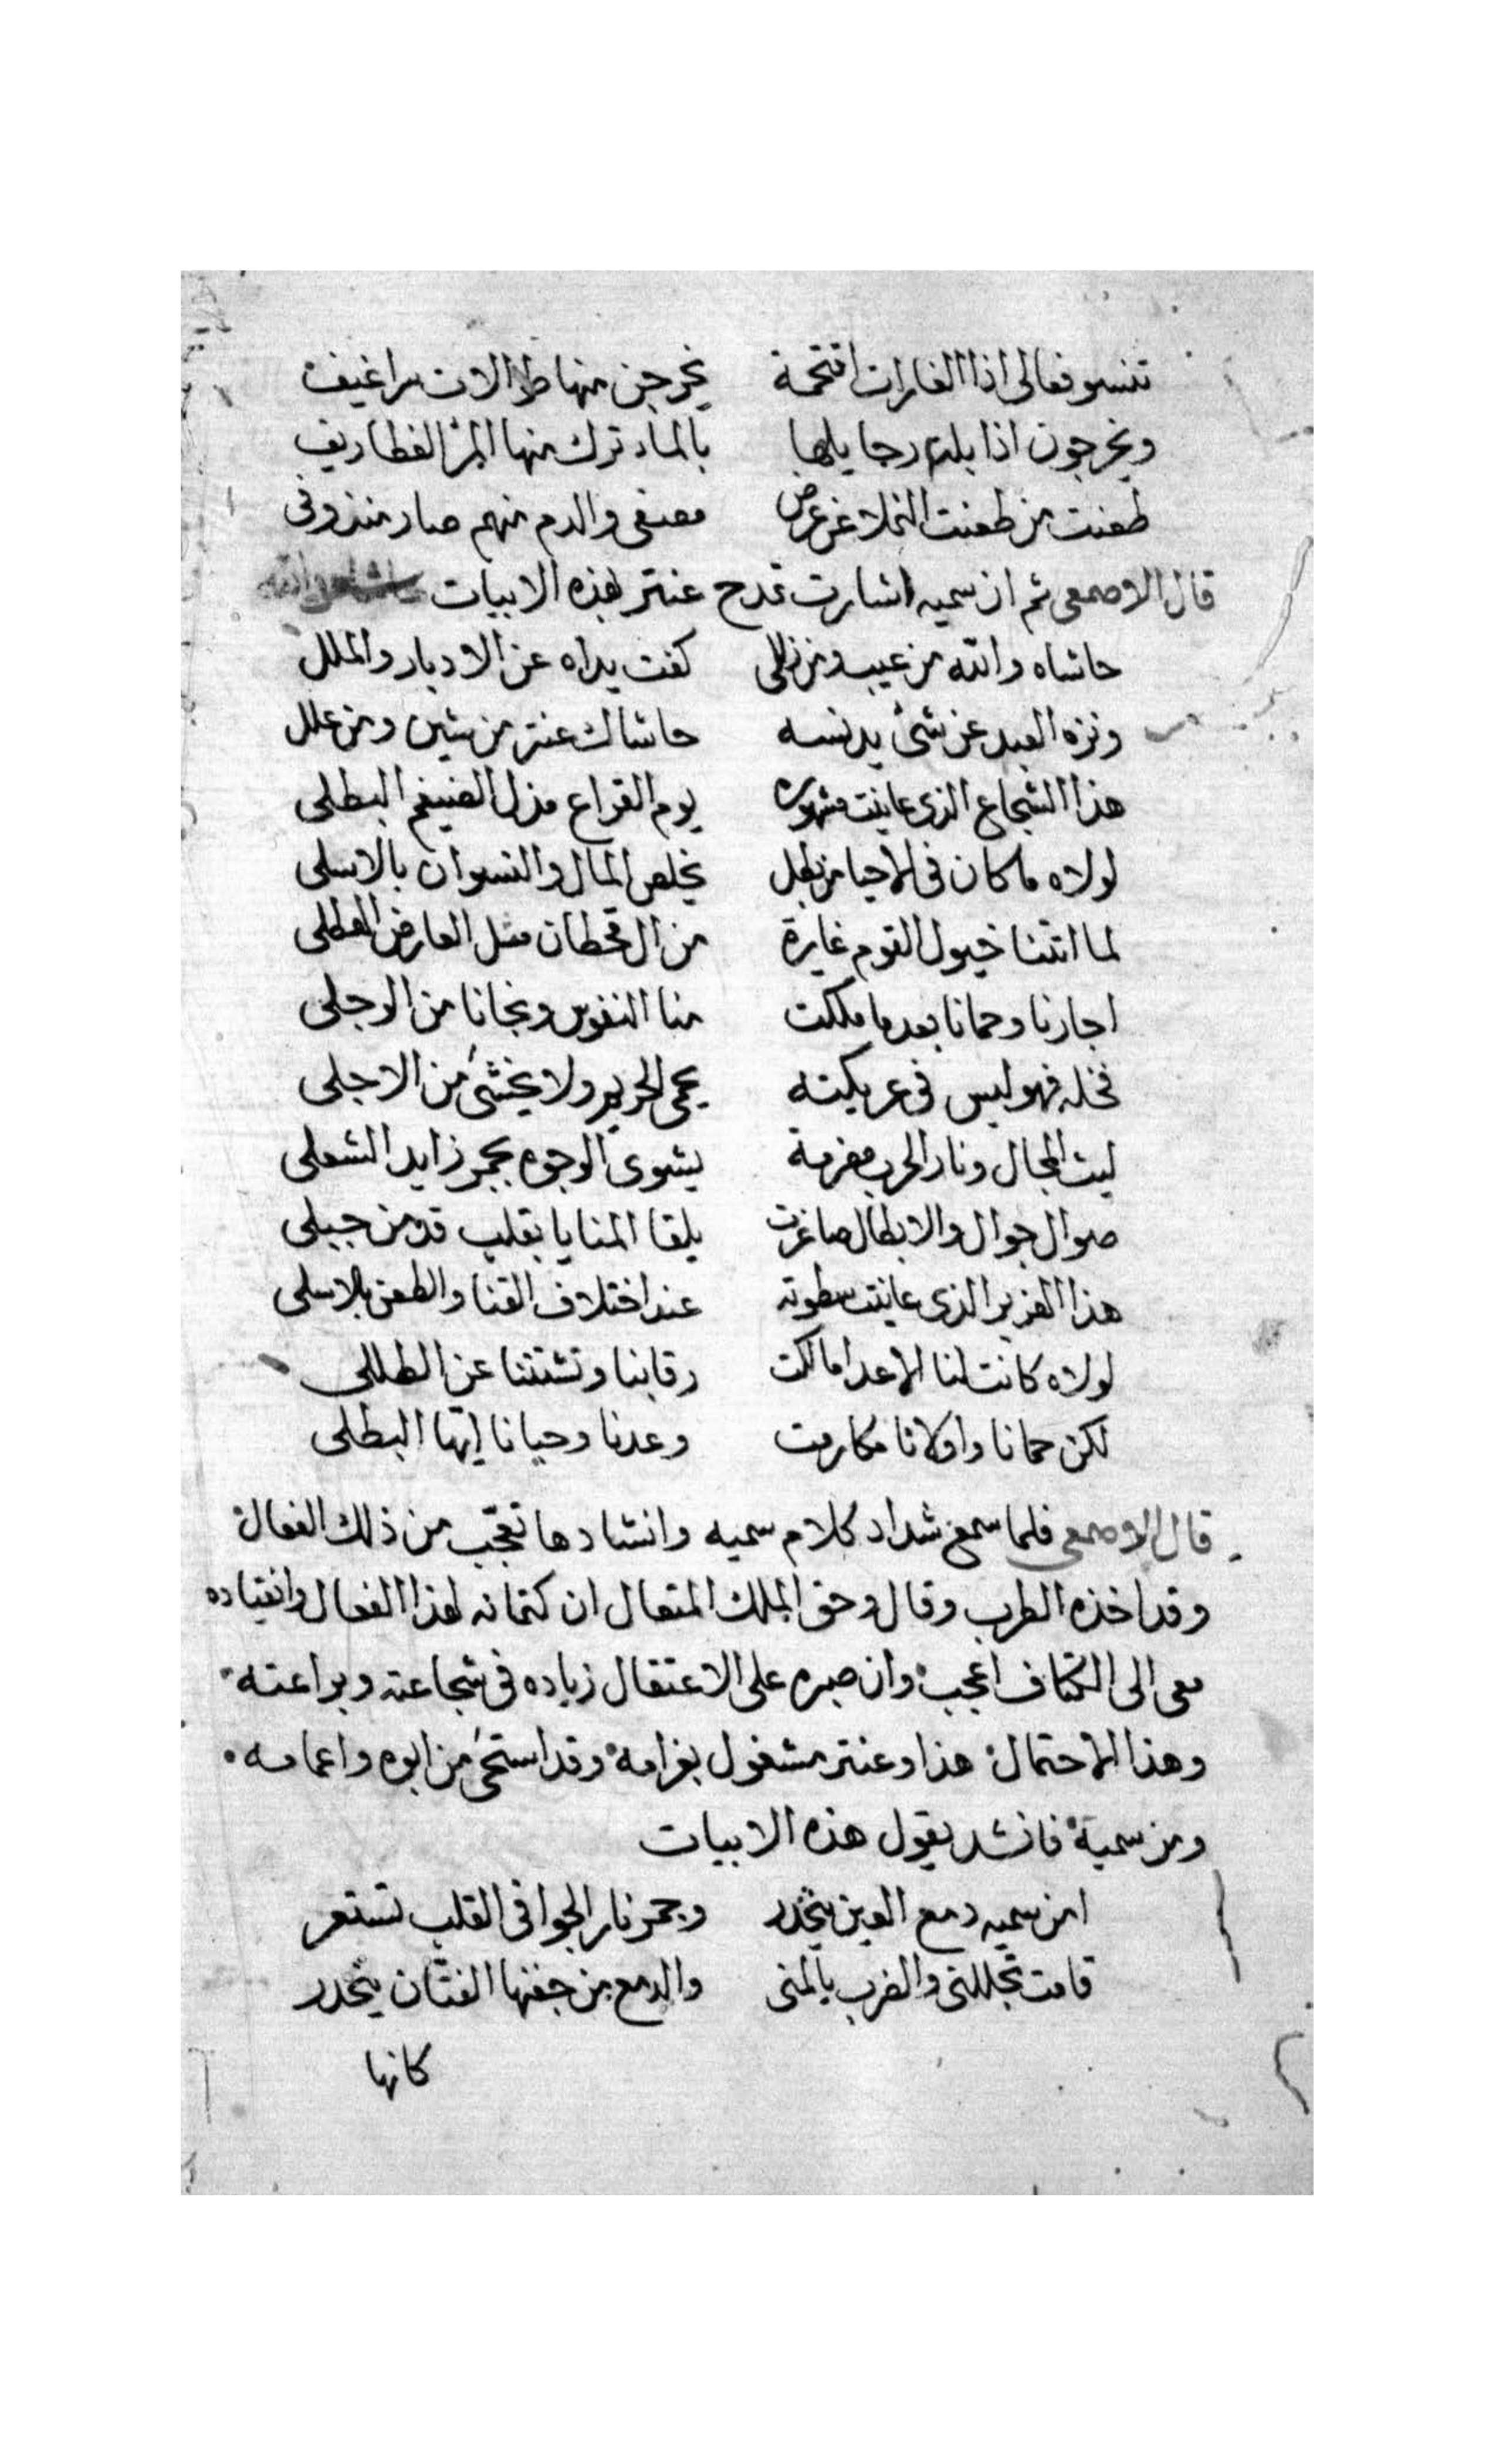 تنسو فعالى اذا الغارات اقتحمة يخرجن منها طوالات سراغيف
ويخرجون اذا رجا يلها بالماد ترك منها الغطاريف
طعنت من طعنت النخلا عن عرض مصفى والدم منهم صار منذوفى
قال الاصمعى ثم ان سميه اشارت تمدح عنتر بهذه الابيات
حاشاه والله من عيب ومن زللى كفت يداه عن الادبار والملل
ونزه العبد عن شئ يدنسه حاشاك عنتر من شين ومن علل
هذا الشجاع الذى عاينت مشهوره يوم القراع مذل الضيغم البطلى
لولاه ما كان فى الاحيا من بطل يخلص المال والنسوان بالاسلى
لما اتتنا خيول القوم غايرة من ال قحطان مثل العارض الهطلى
اجارنا وحمانا بعد ما ملكت منا النفوس ونجانا من الوجلى
فخله فهو ليس فى عريكته يحمى الحريم ولا يخشى من الاجلى
ليث المجال ونار الحرب مضرمة يشوى الوجوه بجمر زايد الشعلى
صوال جوال والابطال صاغرت يلقا المنايا بقلب قد من جبلى
هذا الغزير الذى عاينت سطوته عند اختلاف القنا والطعن بالاسلى
لولاه كانت لنا الاعدا مالكت رقابنا وتشتتنا عن الطللى
لكن حمانا واولانا مكارمت وعدنا وحيانا ايها البطلى
قال الاصمعى فلما سمع شداد كلام سميه وانشادها تعجب من ذلك الفعال
وقد اخذه الطرب وقال وحق الملك المتعال ان كتمانه لهذا الفعال وانقياده
معى الى الكتاف اعجب وان صبره على الاعتقال زياده فى شجاعته وبراعته
وهذا الاحتمال هذا وعنتر مشغول بغرامه وقد استحى من ابوه واعمامه
ومن سمية فانشد يقول هذه الابيات
امن سميه دمع العين ينحدر وجمر نار الجوا فى القلب تستعر
قامت تجللنى والضرب يالمنى والدمع من جفنها الفتان ينحدر
كانها